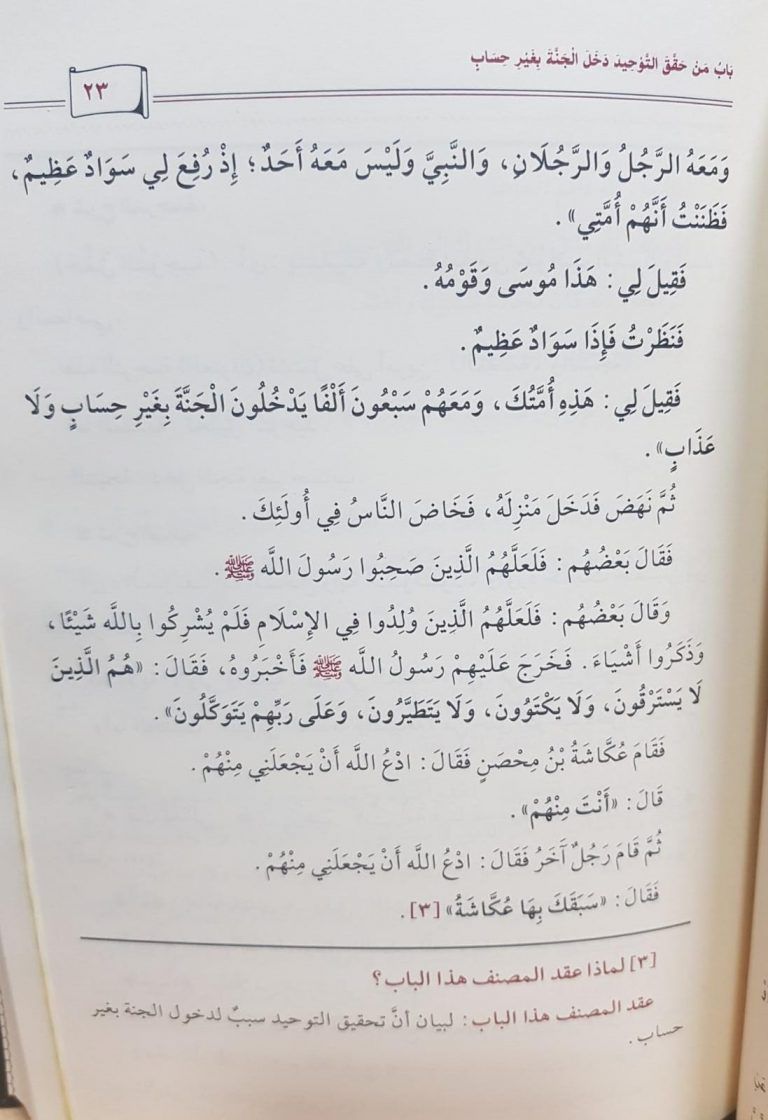 بَابُ مَنْ حَقَّقَ التَّوْحِيدَ دَخَلَ الْجَنَّةَ بِغَيْرِ حِسَابٍ
٢٣
وَمَعَهُ الرَّجُلُ وَالرَّجُلَانِ، وَالنَّبِيَّ وَلَيْسَ مَعَهُ أَحَدٌ؛ إِذْ رُفِعَ لِي سَوَادٌ عَظِيمٌ،
فَظَنَنْتُ أَنَّهُمْ أُمَّتِي».
فَقِيلَ لِي: هَذَا مُوسَى وَقَوْمُهُ.
فَنَظَرْتُ فَإِذَا سَوَادٌ عَظِيمٌ.
فَقِيلَ لِي: هَذِهِ أُمَّتُكَ، وَمَعَهُمْ سَبْعُونَ أَلْفًا يَدْخُلُونَ الْجَنَّةَ بِغَيْرِ حِسَابٍ وَلَا
عَذَابٍ».
ثُمَّ نَهَضَ فَدَخَلَ مَنْزِلَهُ، فَخَاضَ النَّاسُ فِي أُولَئِكَ.
فَقَالَ بَعْضُهُم: فَلَعَلَّهُمُ الَّذِينَ صَحِبُوا رَسُولَ اللَّه ﷺ.
وَقَالَ بَعْضُهُم: فَلَعَلَّهُمُ الَّذِينَ وُلِدُوا فِي الإِسْلَامِ فَلَمْ يُشْرِكُوا بِاللَّه شَيْئًا،
وَذَكَرُوا أَشْيَاءَ. فَخَرَجَ عَلَيْهِمْ رَسُولُ اللَّه ﷺ فَأَخْبَرُوهُ، فَقَالَ: «هُمُ الَّذِينَ
لَا يَسْتَرْقُونَ، وَلَا يَكْتَوُونَ، وَلَا يَتَطَيَّرُونَ، وَعَلَى رَبِّهِمْ يَتَوَكَّلُونَ».
فَقَامَ عُكَّاشَةُ بْنُ مِحْصَنٍ فَقَالَ: ادْعُ اللَّه أَنْ يَجْعَلَنِي مِنْهُمْ.
قَالَ: «أَنْتَ مِنْهُمْ».
ثُمَّ قَامَ رَجُلٌ آخَرُ فَقَالَ: ادْعُ اللَّه أَنْ يَجْعَلَنِي مِنْهُمْ.
فَقَالَ: «سَبَقَكَ بِهَا عُكَّاشَةُ» [٣].
[٣] لماذا عقد المصنف هذا الباب؟
عقد المصنف هذا الباب: لبيان أنَّ تحقيق التوحيد سببٌ لدخول الجنة بغير
حساب.